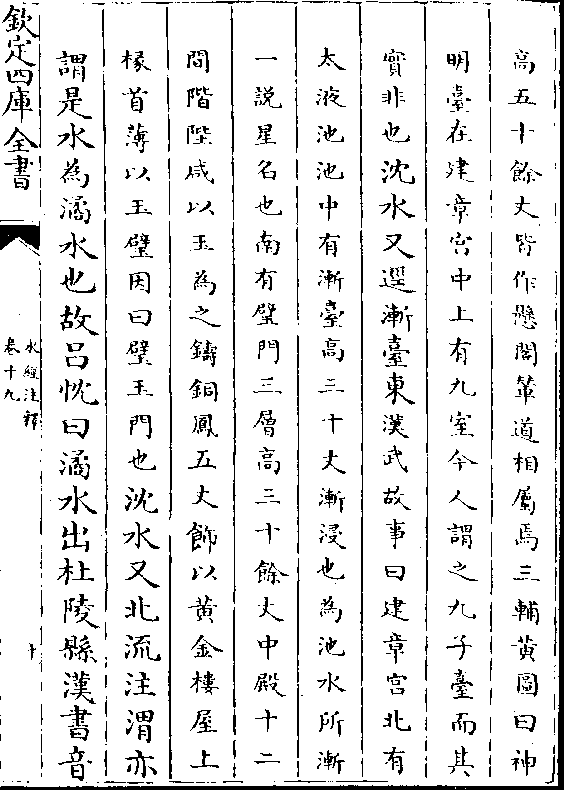 高五十餘丈皆作懸閣輦道相屬焉三輔黃圖曰神
明臺在建章宮中上有九室今人謂之九子臺而其
實非也沈水又逕漸臺東漢武故事曰建章宮北有
太液池池中有漸臺高三十丈漸浸也為池水所漸
一說星名也南有璧門三層高三十餘丈中殿十二
間階陛咸以玉為之鑄銅鳳五丈飾以黃金樓屋上
椽首薄以玉璧因曰璧玉門也沈水又北流注渭亦
謂是水為潏水也故呂忱曰潏水出杜陵縣漢書音
欽定四庫全書
水經注釋
卷十九
十